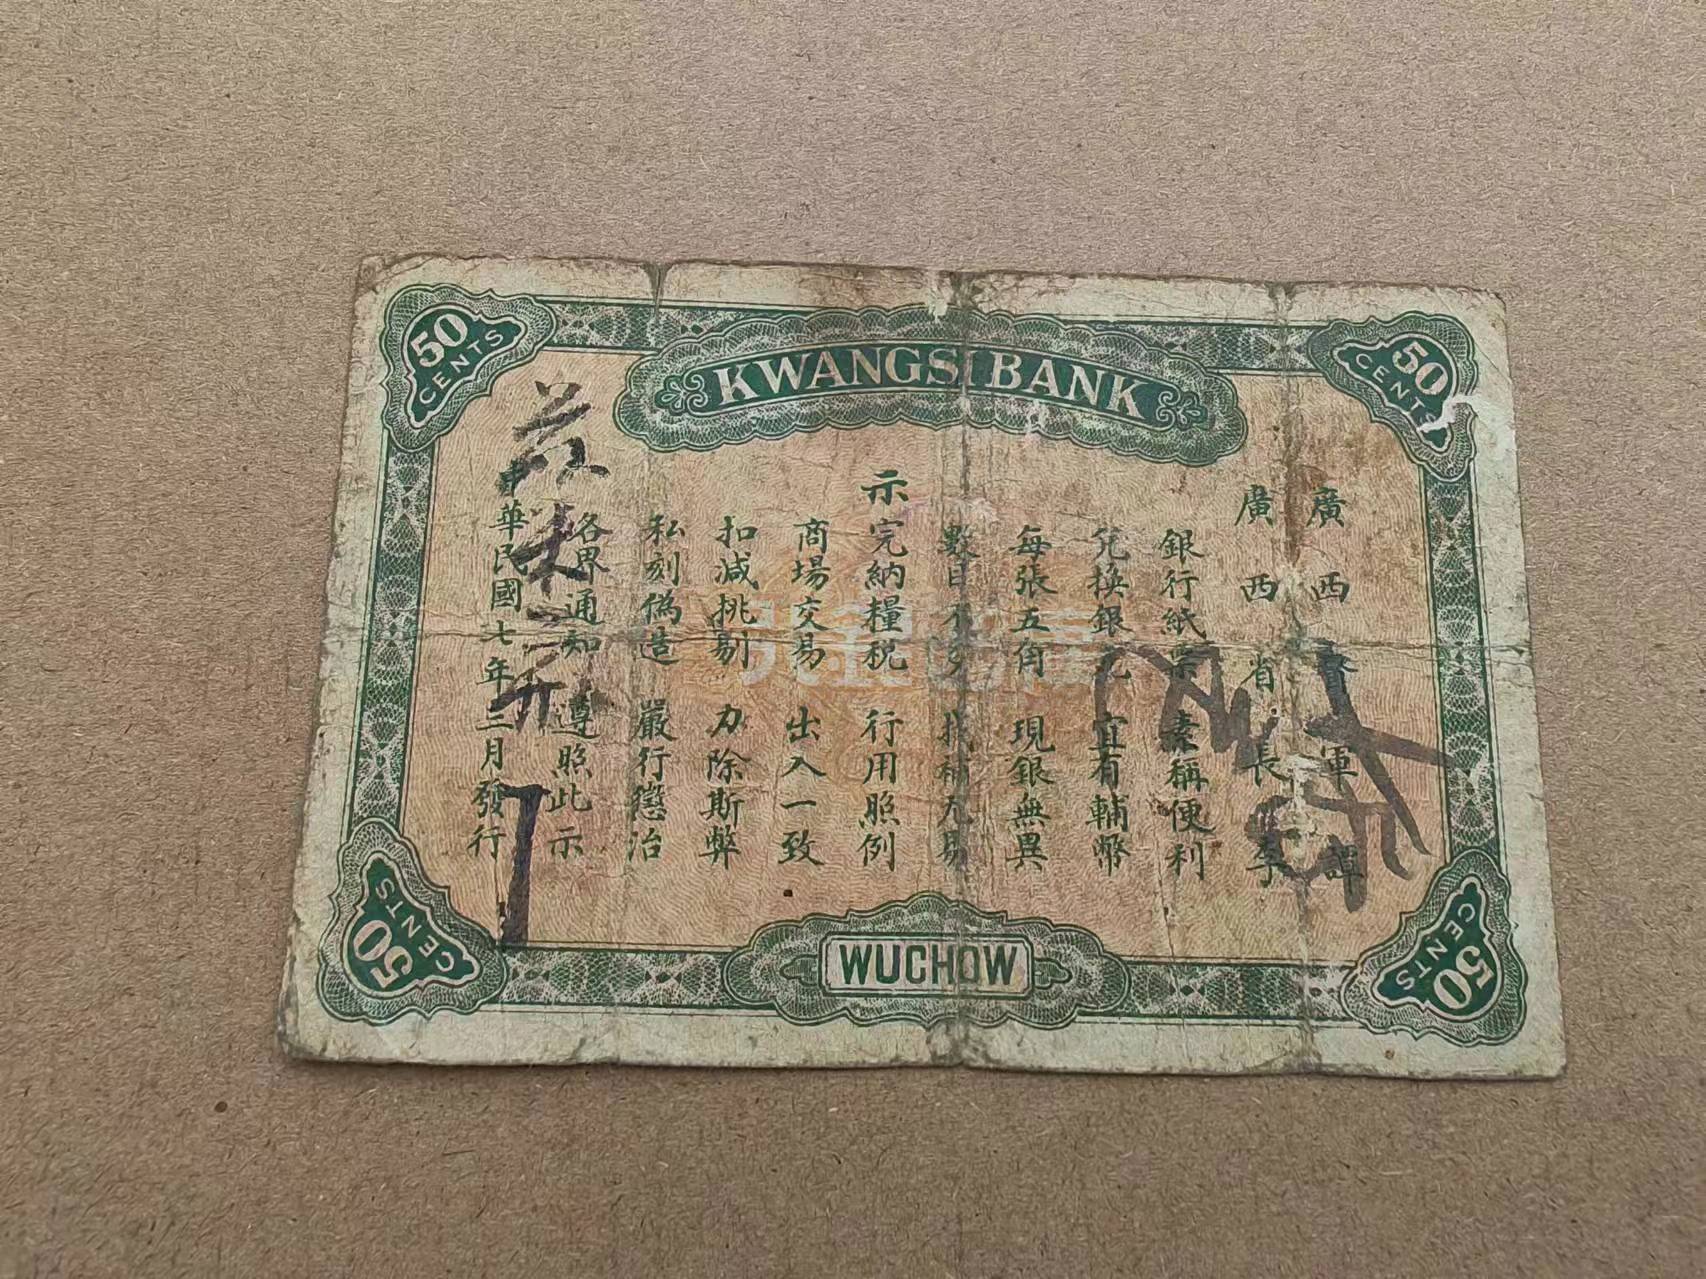 KWANGSI BANK
50 CENTS
50 CENTS
廣西督軍譚
廣西省長李
示
銀行紙票 素稱便利
兌換銀元 宜有輔幣
每張五角 現銀無異
數目不多 找補尤易
完納糧稅 行用照例
商場交易 出入一致
扣減挑剔 力除斯弊
私刻偽造 嚴行懲治
各界通知 遵照此示
中華民國七年三月發行
WUCHOW
50 CENTS
50 CENTS